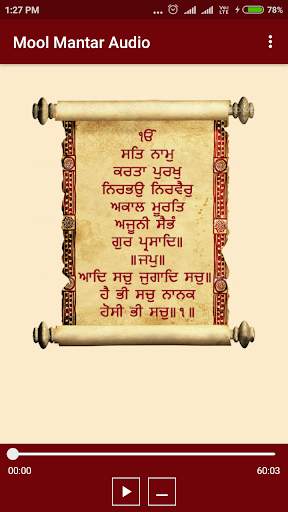 1:27 PM
78%
Mool Mantar Audio
ੴ
ਸਤਿ ਨਾਮੁ
ਕਰਤਾ ਪੁਰਖੁ
ਨਿਰਭਉ ਨਿਰਵੈਰੁ
ਅਕਾਲ ਮੂਰਤਿ
ਅਜੂਨੀ ਸੈਭੰ
ਗੁਰ ਪ੍ਰਸਾਦਿ॥
॥ਜਪੁ॥
ਆਦਿ ਸਚੁ ਜੁਗਾਦਿ ਸਚੁ॥
ਹੈ ਭੀ ਸਚੁ ਨਾਨਕ
ਹੋਸੀ ਭੀ ਸਚੁ॥੧॥
00:00
60:03